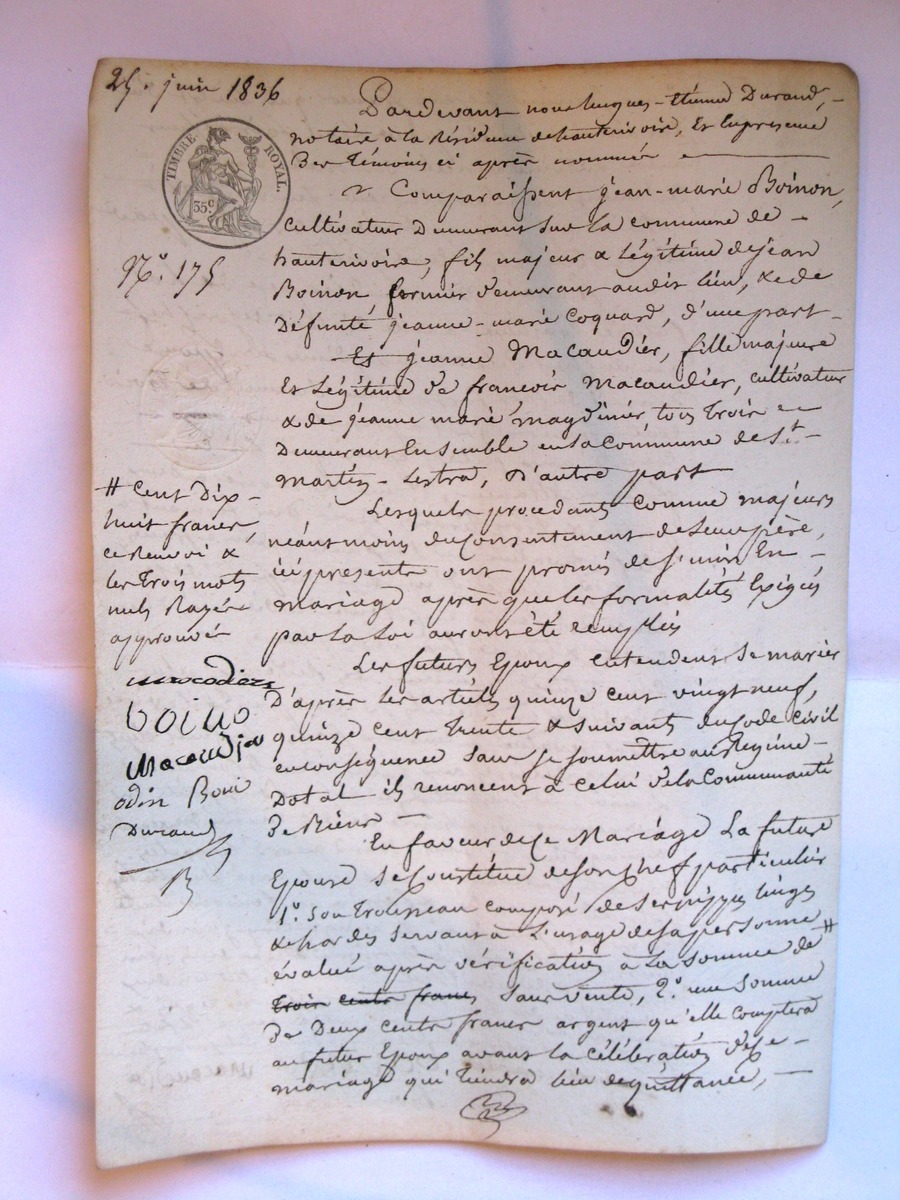 25. juin 1836
TIMBRE ROYAL.
35c
No. 175
Pardevant nous hugues-étienne Durand,
notaire à la Résidence de hauterivoire, Et En presence
Des témoins ci après nommés
Comparaissent jean-marie Boinon,
cultivateur Demeurant sur la commune de
hauterivoire, fils majeur & Légitime de jean
Boinon, fermier demeurant audit lieu, & de
Défunte jeanne-marie Coquard, d'une part
Et jeanne Macaudier, fille majeure
Et Légitime de francois Macaudier, cultivateur
& de jeanne marie magdinier tous Trois
Demeurant Ensemble en la Commune de St.
Martin-Lestra, D'autre part
Lesquels procedant comme majeurs
néantmoins du consentement de Leurs père,
ici presents ont promis de s'unir En
mariage après que les formalités Exigés
par La Loi auront été remplies
Les futurs Epoux entendent se marier
D'après les articles quinze cent vingt neuf,
quinze cent trente & suivants du Code civil
en conséquence sans se soumettre au Régime
Dotal ils renoncent à celui de la Communauté
De Biens
En faveur de Ce Mariage La future
Epouse se Constitue de son chef particulier
1o. son Trousseau composé de ses nippes linges
& hardes servant à L'usage de sa personne
évalué après vérification à La somme de #
Trois cents francs sans vente, 2o. une somme
De Deux cents francs argent qu'elle comptera
au futur Epoux avant la célébration de Ce
mariage qui Tiendra lieu de quittance,
# Cent Dix
huit francs,
ce Renvoi &
les Trois mots
nuls Rayés
approuvés
macodier
boino
Macaudier
odin
Durand
B